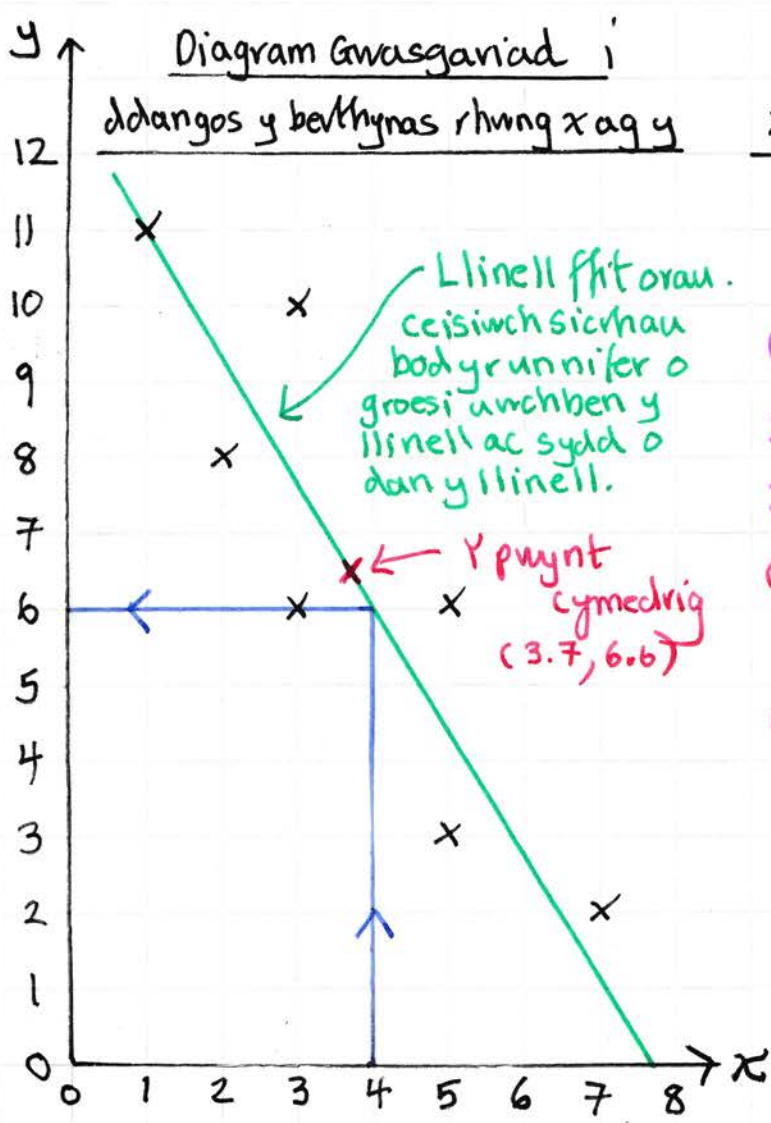 y
Diagram Gwasgariad i
ddangos y berthynas rhwng x ag y
12
11
10
9
8
7
6
5
4
3
2
1
0
Llinell ffit orau.
ceisiwch sicrhau
bod yr un nifer o
groesi uwchben y
llinell ac sydd o
dan y llinell.
Y pwynt
cymedrig
(3.7, 6.6)
0 1 2 3 4 5 6 7 8 x